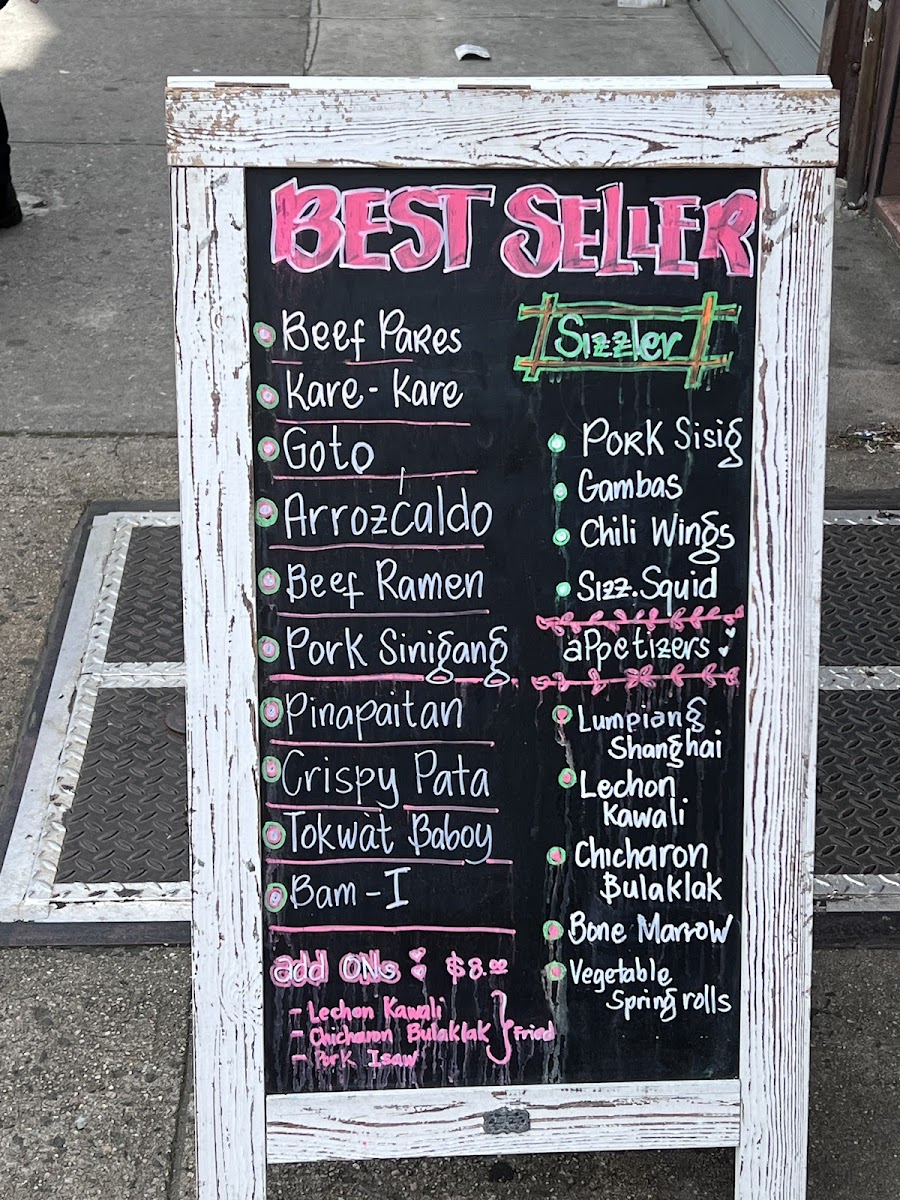 BEST SELLER
Beef Pares
Kare - Kare
Goto
Arrozcaldo
Beef Ramen
Pork Sinigang
Pinapaitan
Crispy Pata
Tokwàt Baboy
Bam - I
add ONs $8.00
- Lechon Kawali
- Chicharon Bulaklak
- Pork Isaw
Fried
Sizzler
Pork Sisig
Gambas
Chili Wings
Sizz. Squid
aPpetizers
Lumpiang
Shanghai
Lechon
Kawali
Chicharon
Bulaklak
Bone Marrow
Vegetable
Spring rolls